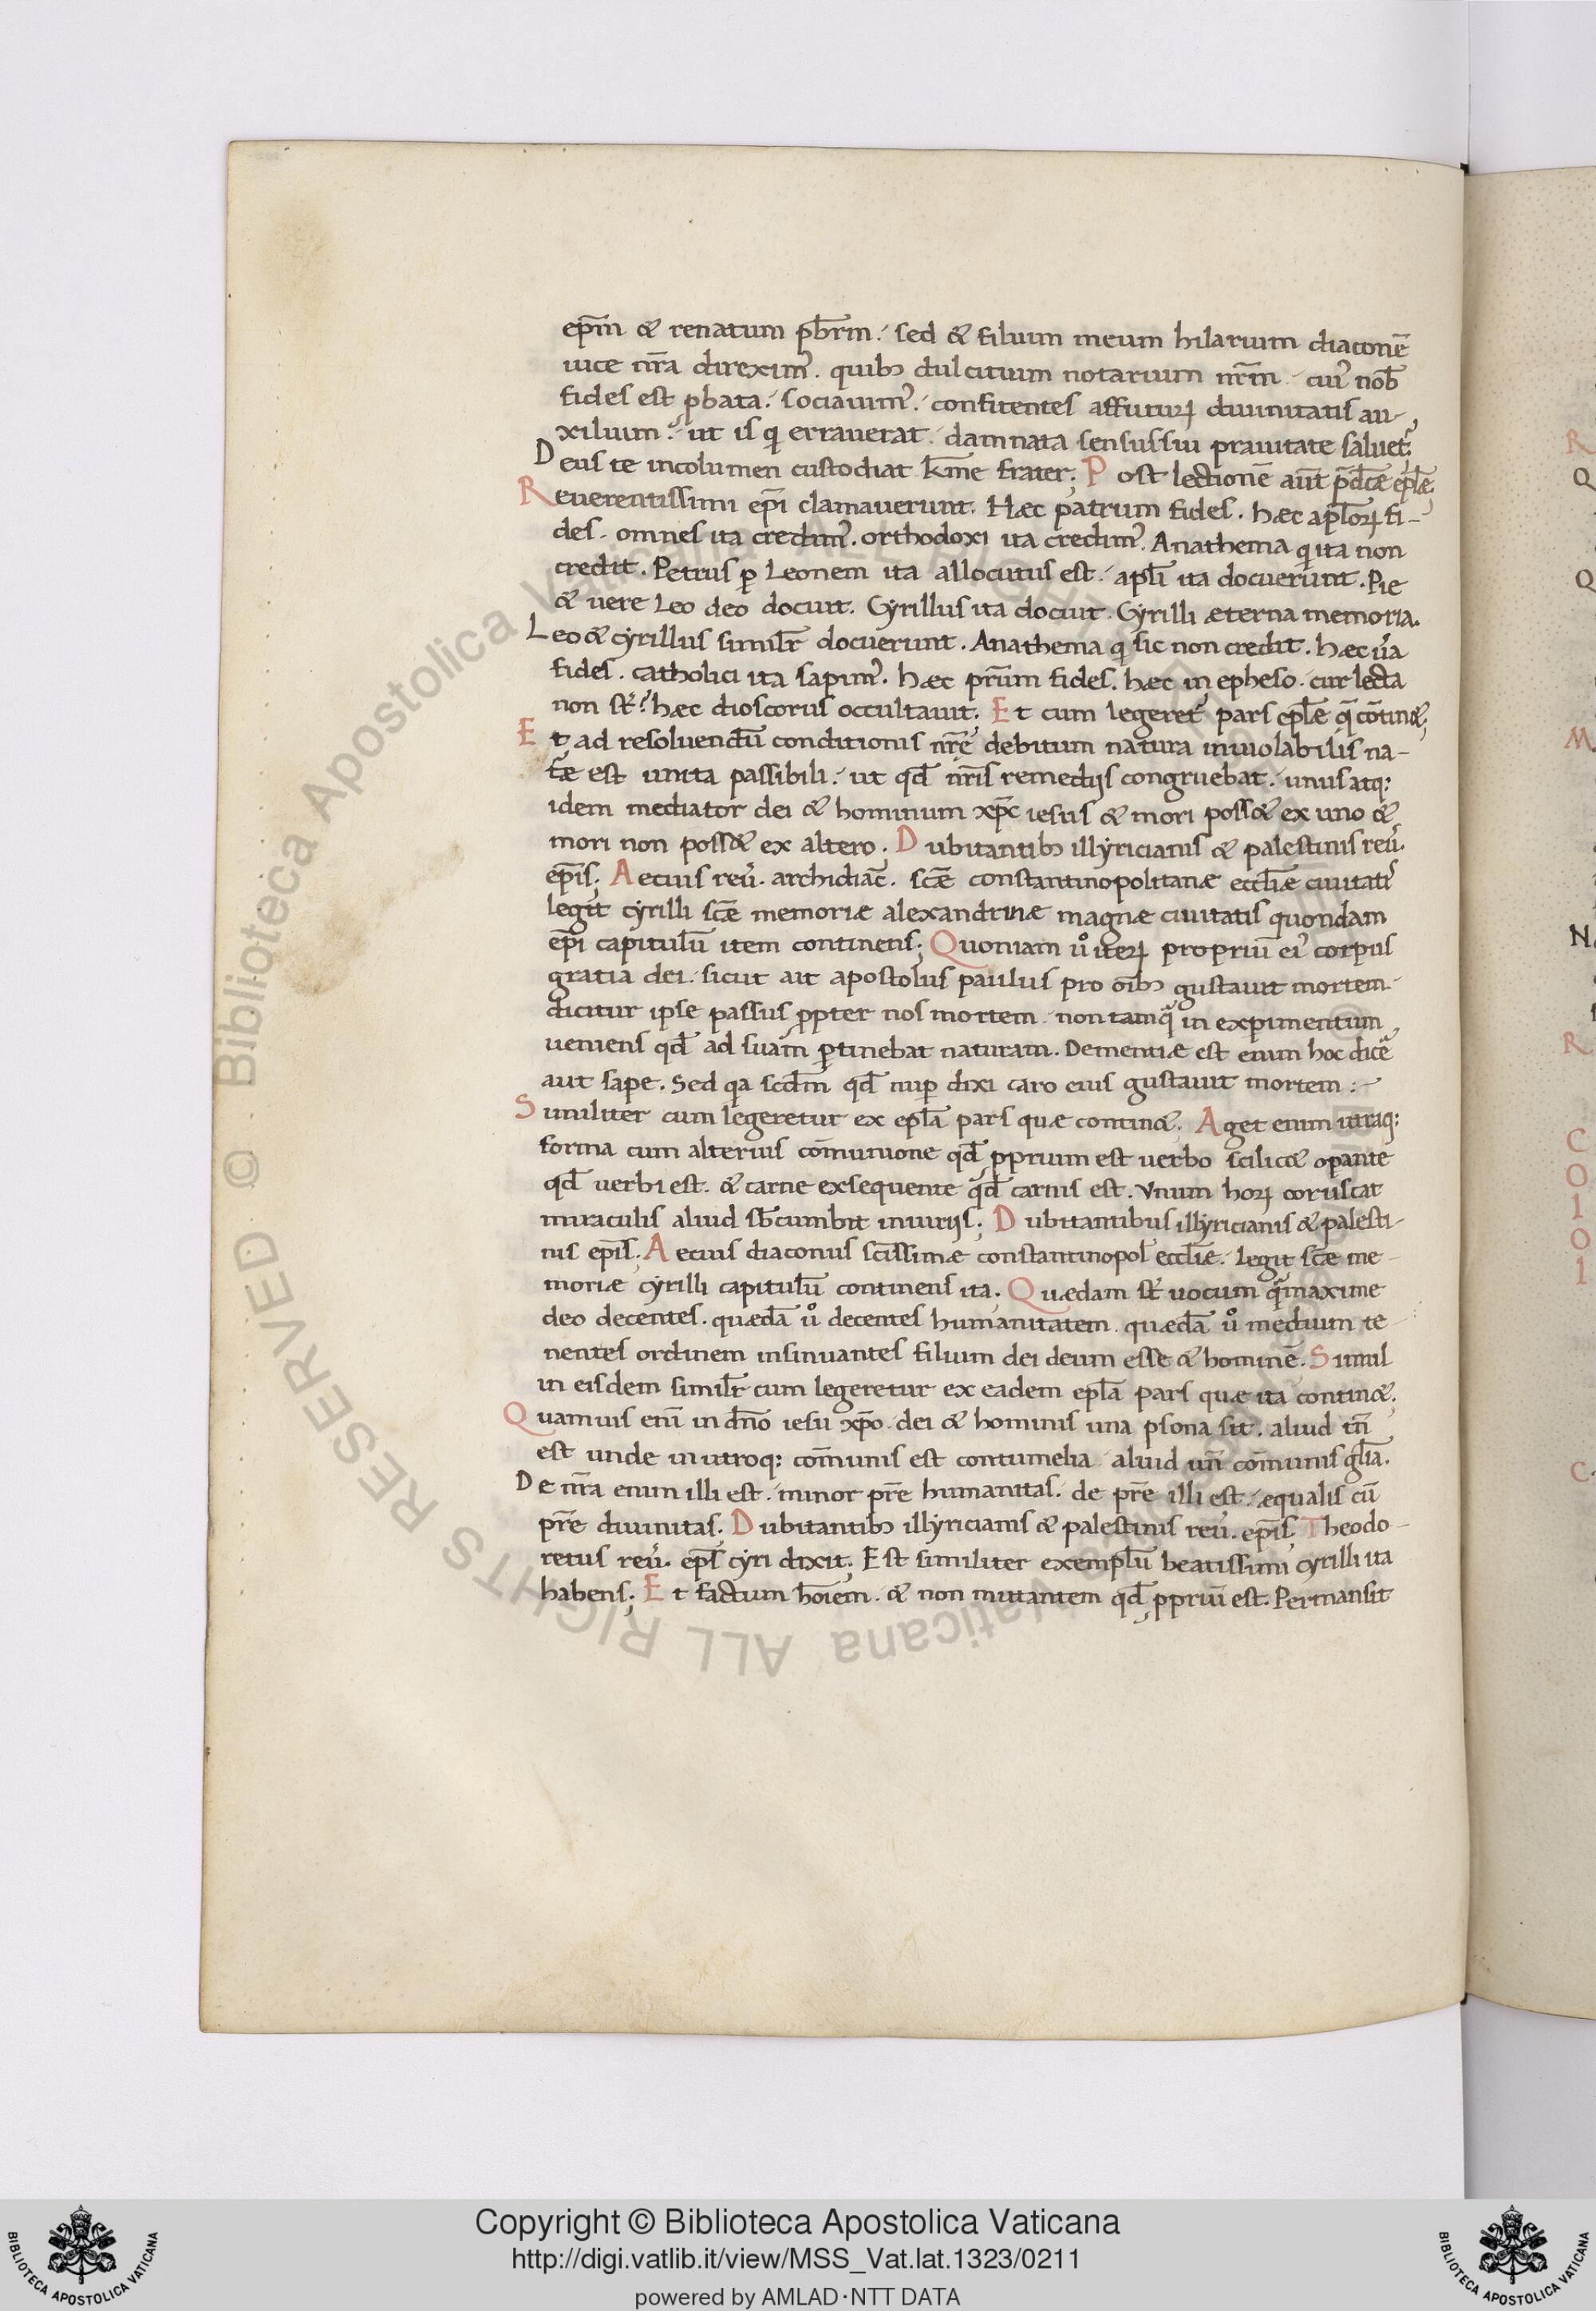 ep̄m & renatum pb̄rm. sed & filium meum hilarium diaconē
uice nr̄a direxim᾽. quib; dulcitium notarium nr̄m. cui᾽ nob̄
fides est ꝓbata. sociauim᾽. confitentes affuturꝝ diuinitatis au-
xilium. ut is qi errauerat. damnata sensus sui prauitate saluet᾽.
Deus te incolumen custodiat km̄e frater; Post lectionē aūt p̄dc̄æ epl̄æ;
Reuerentissimi ep̄i clamauerunt. Hæc patrum fides. hæc apl̄oꝝ fi-
des. omnes ita credim᾽. orthodoxi ita credim᾽. Anathema qi ita non
credit. Petrus ꝑ Leonem ita allocutus est. apl̄i ita docuerunt. Pie
& uere Leo deo docuit. Cyrillus ita docuit. Cyrilli æterna memoria.
Leo & cyrillus simil̄r docuerunt. Anathema qi sic non credit. hæc ūa
fides. catholici ita sapim᾽. hæc pr̄um fides. hæc in epheso. cur lecta
non st̄? hæc dioscorus occultauit. Et cum legeret᾽ pars epl̄æ q̄ cōtin&;
Et ad resoluendū conditionis nr̄ę debitum natura inuiolabilis na-
tæ est unita passibili. ut qd̄ nr̄is remedijs congruebat. unus atq:
idem mediator dei & hominum xp̄c iesus & mori poss& ex uno &
mori non poss& ex altero. Dubitantib; illyricianis & palestinis reu᾽.
ep̄is; Aecius reu᾽. archidiac̄. sc̄æ constantinopolitanæ eccl̄iæ ciuitati᾽
legit cyrilli sc̄æ memoriæ alexandrinæ magnæ ciuitatis quondam
ep̄i capitulū item continens; Quoniam uo iteꝝ propriū ei᾽ corpus
gratia dei. sicut ait apostolus paulus pro oīb; gustauit mortem
dicitur ipse passus ꝓpter nos mortem. non tamq̄ in expimentum
ueniens qd̄ ad suam ꝑtinebat naturam. Dementiæ est enim hoc dicē
aut sape. Sed qa scd̄m qd̄ nuꝑ dixi caro eius gustauit mortem:
Similiter cum legeretur ex epl̄a pars quæ contin&. Aget enim utraq:
forma cum alterius cōmunione qd̄ ꝓprium est uerbo scilic& opante
qd̄ uerbi est. & carne exsequente qd̄ carnis est. Vnum hoꝝ coruscat
miraculis aliud sb̄cumbit iniurijs; Dubitantibus illyricianis & palesti-
nis ep̄is. Aecius diaconus sc̄issimæ constantinopol̄ eccl̄iæ. legit sc̄æ me-
moriæ cyrilli capitulū continens ita. Quædam st̄ uocum q̄ maxime
deo decentes. quædā uo decentes humanitatem. quædā uo medium te
nentes ordinem insinuantes filium dei deum esse & hominē. Simul
in eisdem simil̄r cum legeretur ex eadem epl̄a pars quæ ita contin&;
Quamuis eni᾽ in dn̄o iesu xp̄o. dei & hominis una psona sit. aliud tn̄
est unde in utroq: cōmunis est contumelia. aliud un̄ cōmunis gl̄ia.
De nr̄a enim illi est. minor pr̄e humanitas. de pr̄e illi est. æqualis cū
pr̄e diuinitas. Dubitantib; illyricianis & palestinis reu᾽. ep̄is; Theodo-
retus reu᾽. ep̄s cyri dixit; Est similiter exemplū beatissimi cyrilli ita
habens; Et factum hōiem. & non mutantem qd̄ ꝓpriū est. Permansit
R
Q
Q
M
N
R
C
O
I
O
I
C
© Biblioteca Apostolica Vaticana ALL RIGHTS RESERVED
Copyright © Biblioteca Apostolica Vaticana
http://digi.vatlib.it/view/MSS_Vat.lat.1323/0211
powered by AMLAD·NTT DATA
BIBLIOTECA APOSTOLICA VATICANA
BIBLIOTECA APOSTOLICA VATICANA